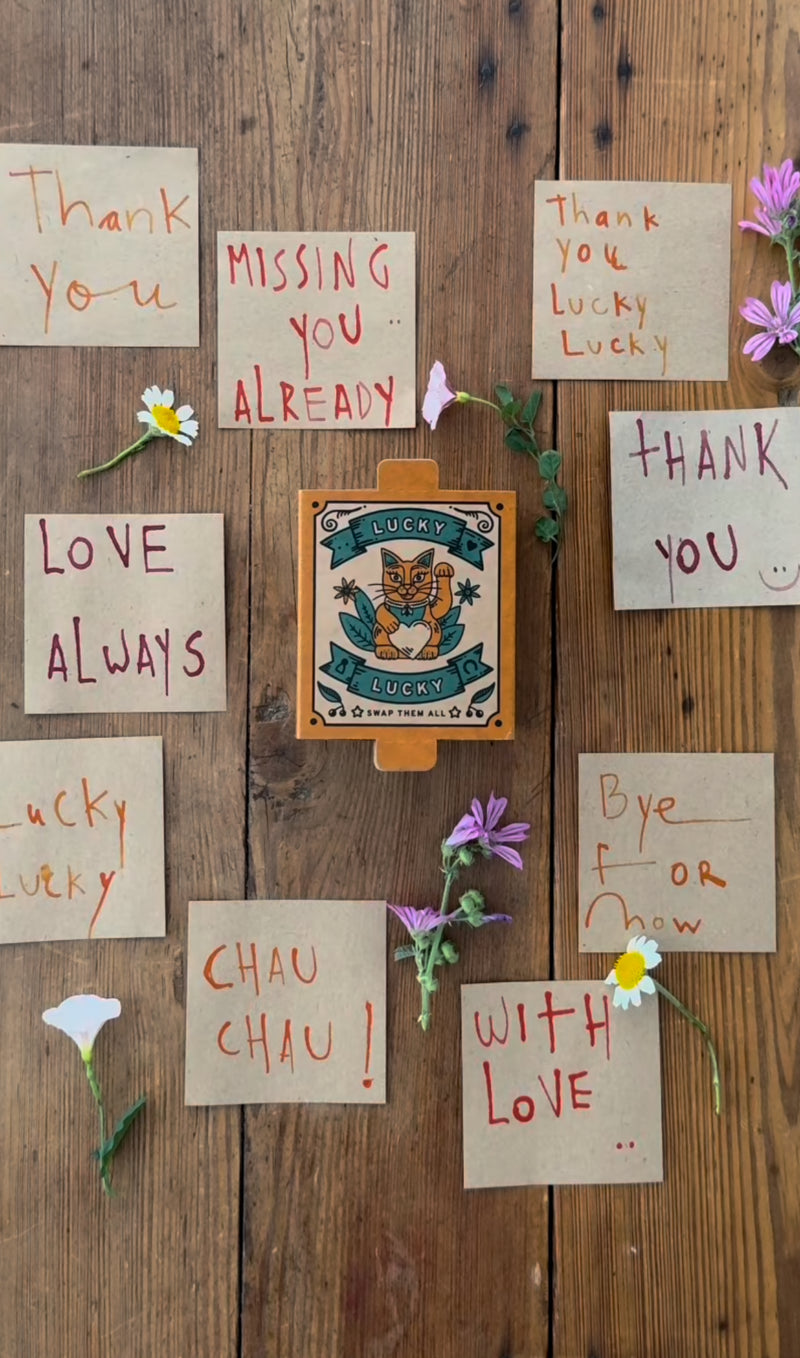 Thank
you
MISSING
YOU
ALREADY
Thank
you
Lucky
Lucky
tHANK
YOU
LOVE
ALWAYS
LUCKY
LUCKY
SWAP THEM ALL
Lucky
Lucky
Bye
FOR
now
CHAU
CHAU!
WItH
LOVE